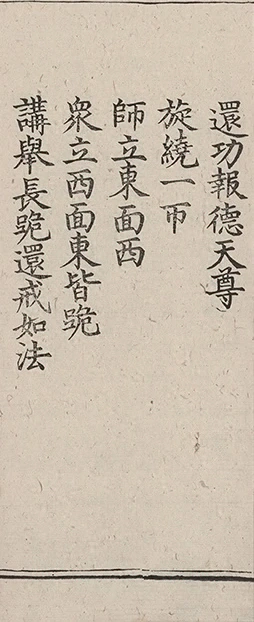 還功報德天尊
旋繞一帀
師立東面西
衆立西面東皆跪
講舉長跪還戒如法